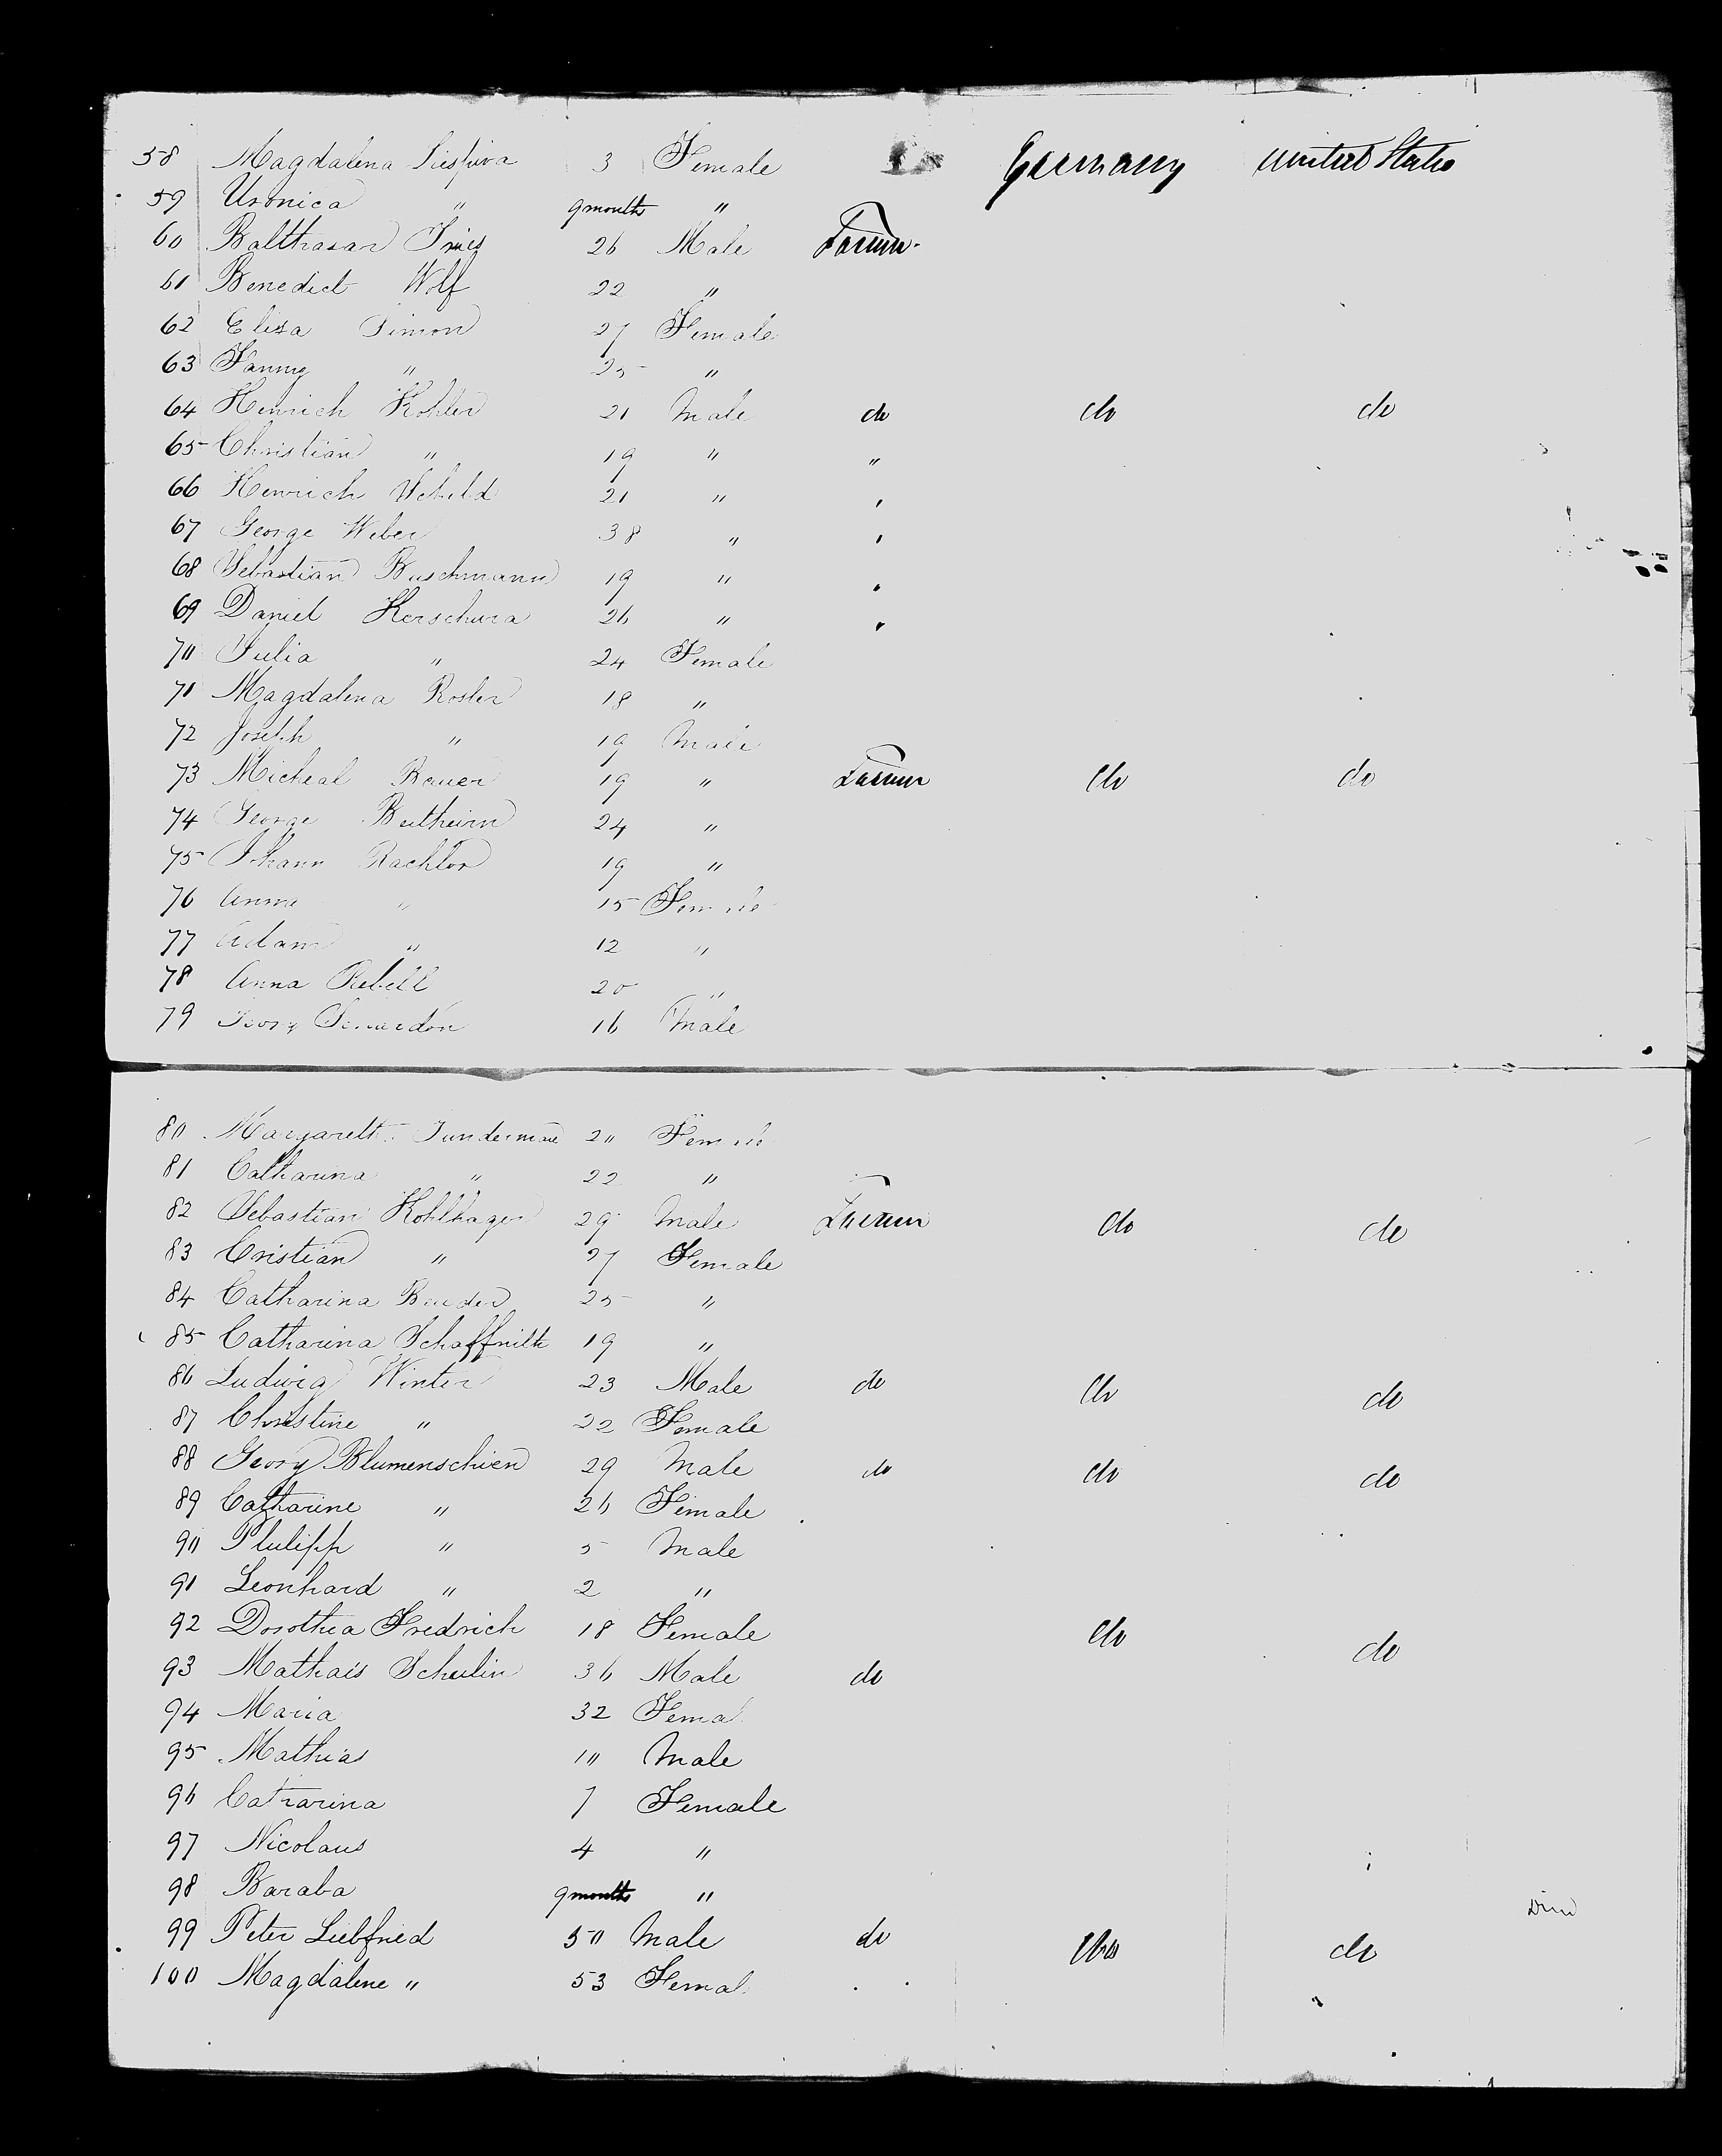 58 Magdalena Sispira 3 Female Germany United States
59 Uronica " 9 months "
60 Balthasar Fries 26 Male Farmer
61 Benedict Wolf 22 "
62 Elisa Simon 27 Female
63 Fanny " 25 "
64 Henrich Kohler 21 Male do do do
65 Christian " 19 " "
66 Henrich Scheld 21 " "
67 George Weber 38 " "
68 Sebastian Buschmann 19 " "
69 Daniel Kerschura 26 " "
70 Julia " 24 Female
71 Magdalena Rosler 18 "
72 Joseph " 19 Male
73 Micheal Bauer 19 " Farmer do do
74 George Bertheim 24 "
75 Johann Rachlor 19 "
76 Anna " 15 Female
77 Adam " 12 "
78 Anna Rebell 20 "
79 Georg 16 Male
80 Margareth 20 Female
81 Catharina " 22 "
82 Sebastian Kohlhagen 29 Male Farmer do do
83 Cristian " 27 Female
84 Catharina Bender 25 "
85 Catharina Schaffnilth 19 "
86 Ludwig Winter 23 Male do do do
87 Christine " 22 Female
88 Georg Blumenschien 29 Male do do do
89 Catharine " 26 Female
90 Phulipp " 5 Male
91 Leonhard " 2 "
92 Dorothea Fredrich 18 Female do do
93 Mathais Schulin 36 Male do
94 Maria 32 Femal
95 Mathias 10 Male
96 Catharina 7 Female
97 Nicolaus 4 "
98 Baraba 9 months "
99 Peter Liebfried 50 Male do do do
100 Magdalene " 53 Femal